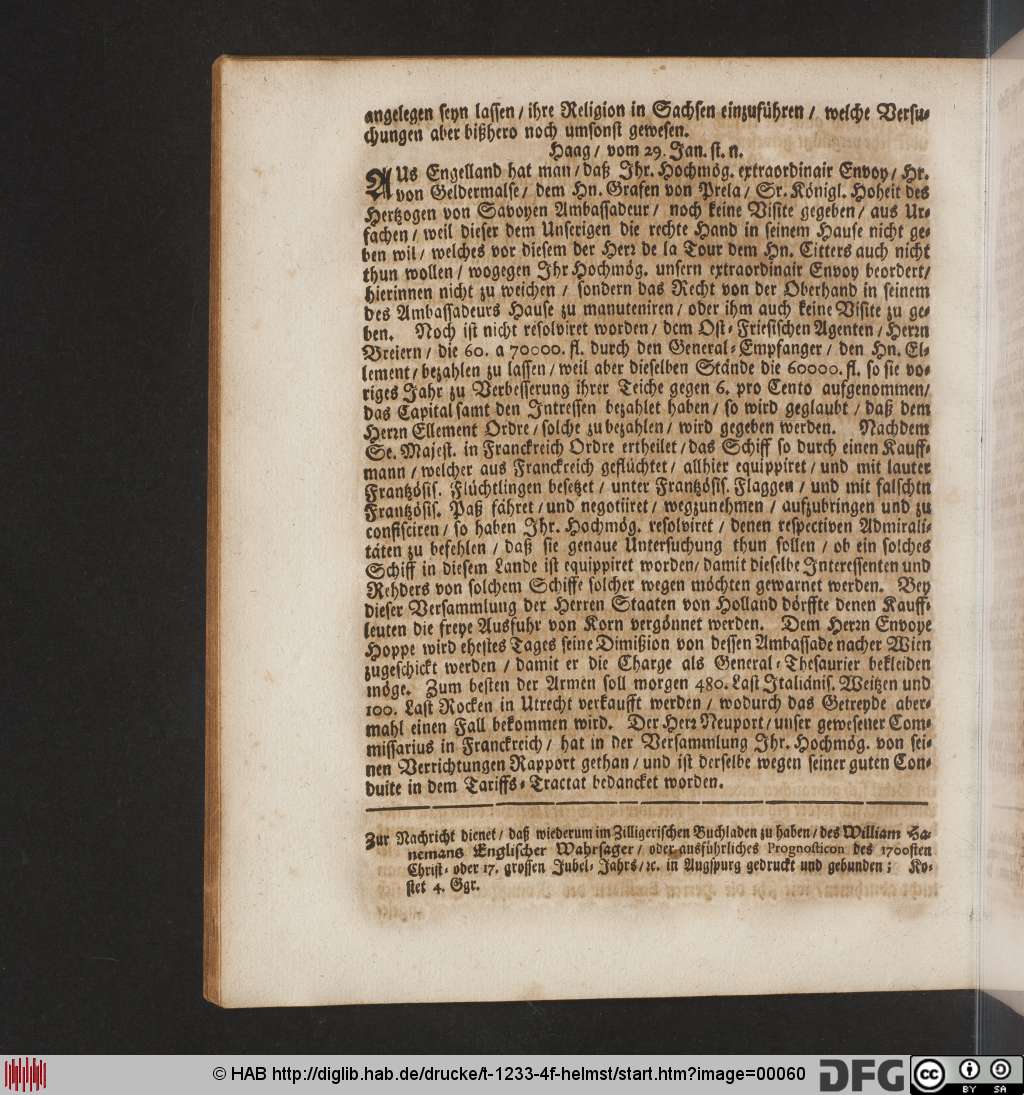 angelegen seyn lassen / ihre Religion in Sachsen einzuführen / welche Versu-
chungen aber bißhero noch umsonst gewesen.
Haag / vom 29. Jan. st. n.
AUs Engelland hat man / daß Ihr. Hochmög. extraordinair Envoy / Hr.
von Geldermalse / dem Hn. Grafen von Prela / Sr. Königl. Hoheit des
Hertzogen von Savoyen Ambassadeur / noch keine Visite gegeben / aus Ur-
sachen / weil dieser dem Unserigen die rechte Hand in seinem Hause nicht ge-
ben wil / welches vor diesem der Herr de la Tour dem Hn. Citters auch nicht
thun wollen / wogegen Ihr Hochmög. unsern extraordinair Envoy beordert /
hierinnen nicht zu weichen / sondern das Recht von der Oberhand in seinem
des Ambassadeurs Hause zu manuteniren / oder ihm auch keine Visite zu ge-
ben. Noch ist nicht resolviret worden / dem Ost-Friesischen Agenten / Herrn
Breiern / die 60. a 70000. fl. durch den General-Empfanger / den Hn. El-
lement / bezahlen zu lassen / weil aber dieselben Stände die 60000. fl. so sie vo-
riges Jahr zu Verbesserung ihrer Teiche gegen 6. pro Cento aufgenommen /
das Capital samt den Intressen bezahlet haben / so wird geglaubt / daß dem
Herrn Ellement Ordre / solche zu bezahlen / wird gegeben werden. Nachdem
Se. Majest. in Franckreich Ordre ertheilet / das Schiff so durch einen Kauff-
mann / welcher aus Franckreich geflüchtet / allhier equippiret / und mit lauter
Frantzösis. Flüchtlingen besetzet / unter Frantzösis. Flaggen / und mit falschtn
Frantzösis. Paß fähret / und negotiiret / wegzunehmen / aufzubringen und zu
confisciren / so haben Ihr. Hochmög. resolviret / denen respectiven Admirali-
täten zu befehlen / daß sie genaue Untersuchung thun sollen / ob ein solches
Schiff in diesem Lande ist equippiret worden / damit dieselbe Interessenten und
Rehders von solchem Schiffe solcher wegen möchten gewarnet werden. Bey
dieser Versammlung der Herren Staaten von Holland dörffte denen Kauff-
leuten die freye Ausfuhr von Korn vergönnet werden. Dem Herrn Envoye
Hoppe wird ehestes Tages seine Dimißion von dessen Ambassade nacher Wien
zugeschickt werden / damit er die Charge als General-Thesaurier bekleiden
möge. Zum besten der Armen soll morgen 480. Last Italiänis. Weitzen und
100. Last Rocken in Utrecht verkaufft werden / wodurch das Getreyde aber-
mahl einen Fall bekommen wird. Der Herr Neuport / unser gewesener Com-
missarius in Franckreich / hat in der Versammlung Ihr. Hochmög. von sei-
nen Verrichtungen Rapport gethan / und ist derselbe wegen seiner guten Con-
duite in dem Tariffs-Tractat bedancket worden.
Zur Nachricht dienet / daß wiederum im Zilligerischen Buchladen zu haben / des William Ha-
nemans Englischer Wahrsager / oder ausführliches Prognosticon des 1700sten
Christ- oder 17. grossen Jubel-Jahrs / ꝛc. in Augspurg gedruckt und gebunden ; Ko-
stet 4. Ggr.
© HAB http://diglib.hab.de/drucke/t-1233-4f-helmst/start.htm?image=00060
DFG
cc BY SA